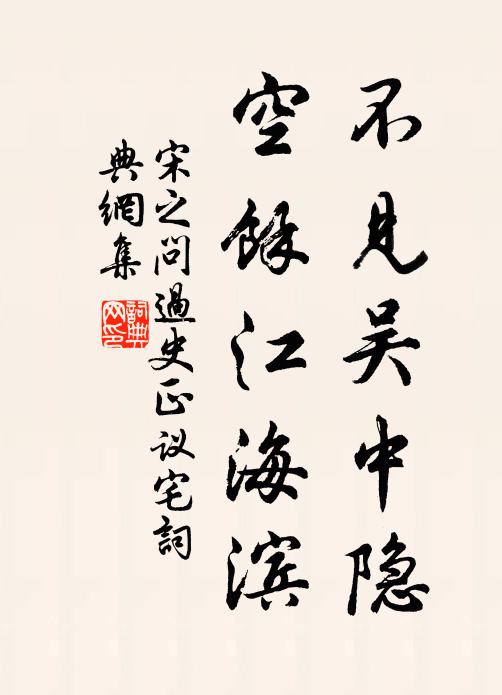 不见吴中隐
空餘江海滨
宋之问過史正议宅詞
典網集
詞典网印